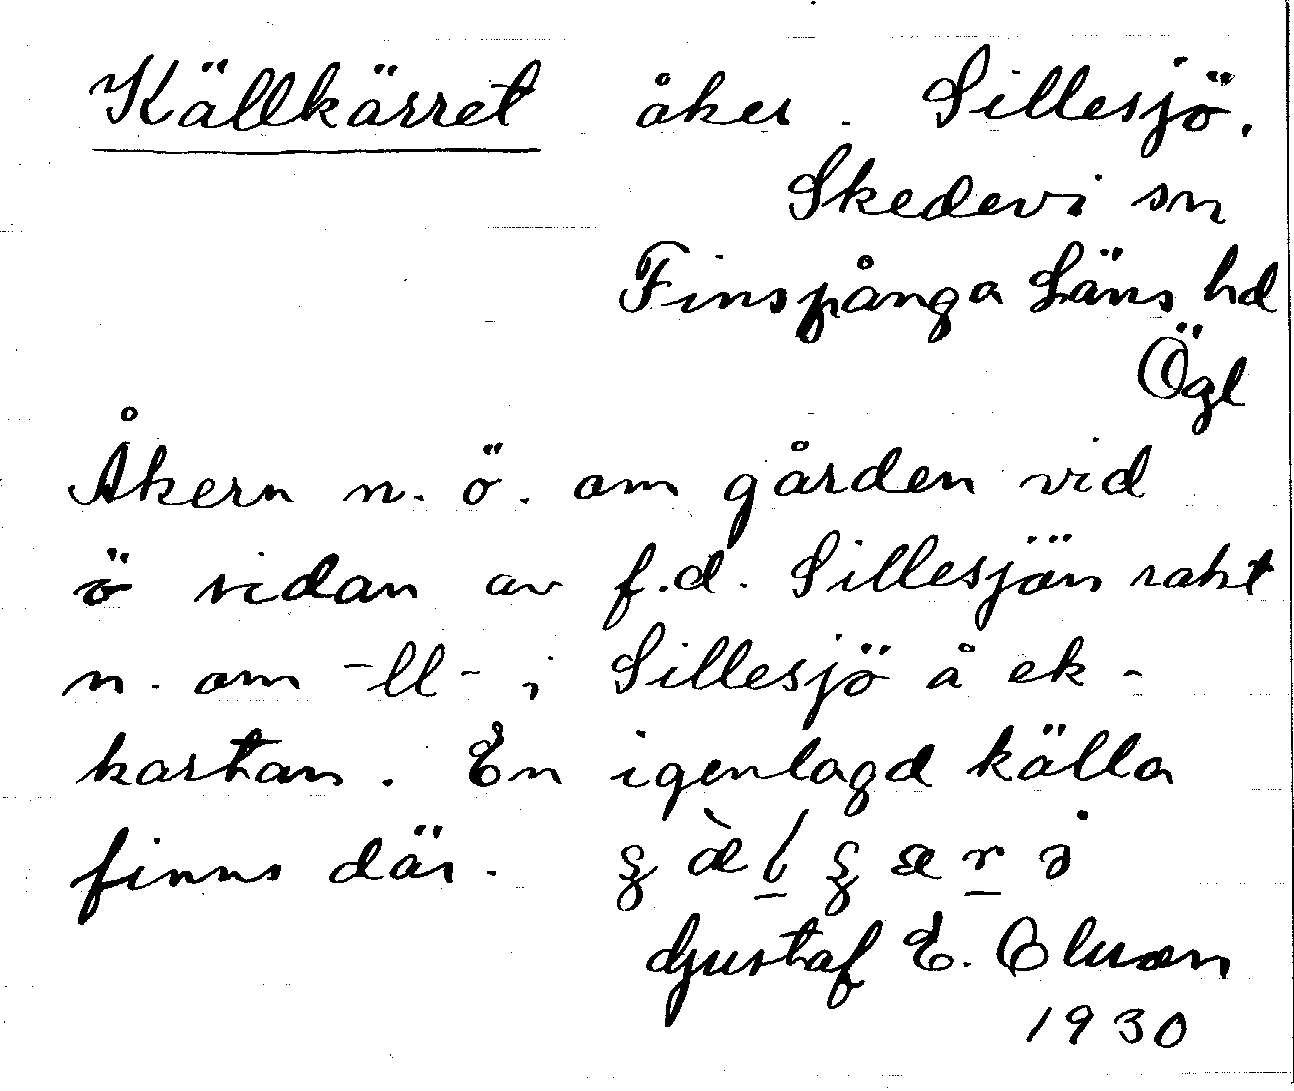 Källkärret åker. Sillesjö.
Skedevi sn
Finspånga Läns hd
Ögl
Åkern n.ö. om gården vid
ö sidan av f.d. Sillesjön rakt
n. om -ll- i Sillesjö å ek-
kartan. En igenlagd källa
finns där.
Gustaf E. Olsson
1930